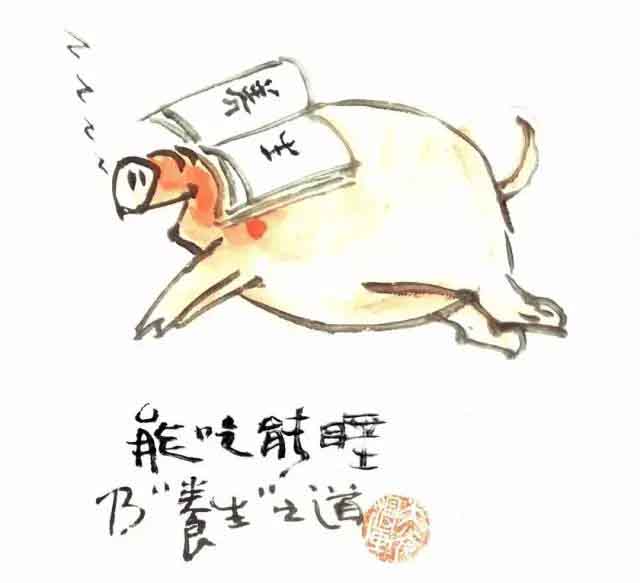 养生
能吃能睡
乃"養生"之道